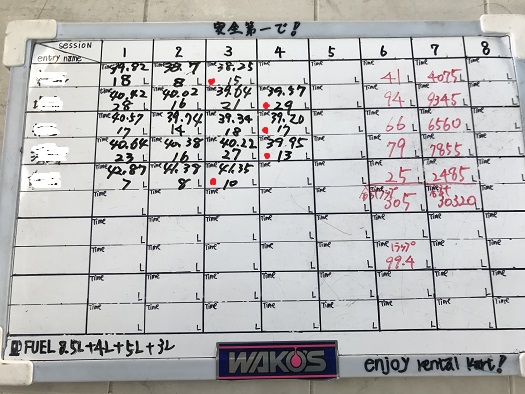 安全第一で!
session 1 2 3 4 5 6 7 8
entry name
Time 39.82 Time 38.7 Time 38.25 Time Time Time Time Time
18 L 8 L 15 L L L 41 L 4075 L L
Time 40.42 Time 40.02 Time 39.64 Time 39.57 Time Time Time Time
28 L 16 L 21 L 29 L L 94 L 9345 L L
Time 40.57 Time 39.74 Time 39.34 Time 39.20 Time Time Time Time
17 L 14 L 18 L 17 L L 66 L 6560 L L
Time 40.64 Time 40.38 Time 40.22 Time 39.95 Time Time Time Time
23 L 16 L 27 L 13 L L 79 L 7855 L L
Time 42.87 Time 41.39 Time 41.35 Time Time Time Time Time
7 L 8 L 10 L L L 25 L 2485 L L
Time Time Time Time Time Time Time Time
L L L L L 305 L 30320 L L
Time Time Time Time Time Time 1ラップ Time Time
L L L L L 99.4 L L L
Time Time Time Time Time Time Time Time
L L L L L L L L
Time Time Time Time Time Time Time Time
L L L L L L L L
FUEL 8.5L+4L+5L+3L
WAKO'S
enjoy rental kart!